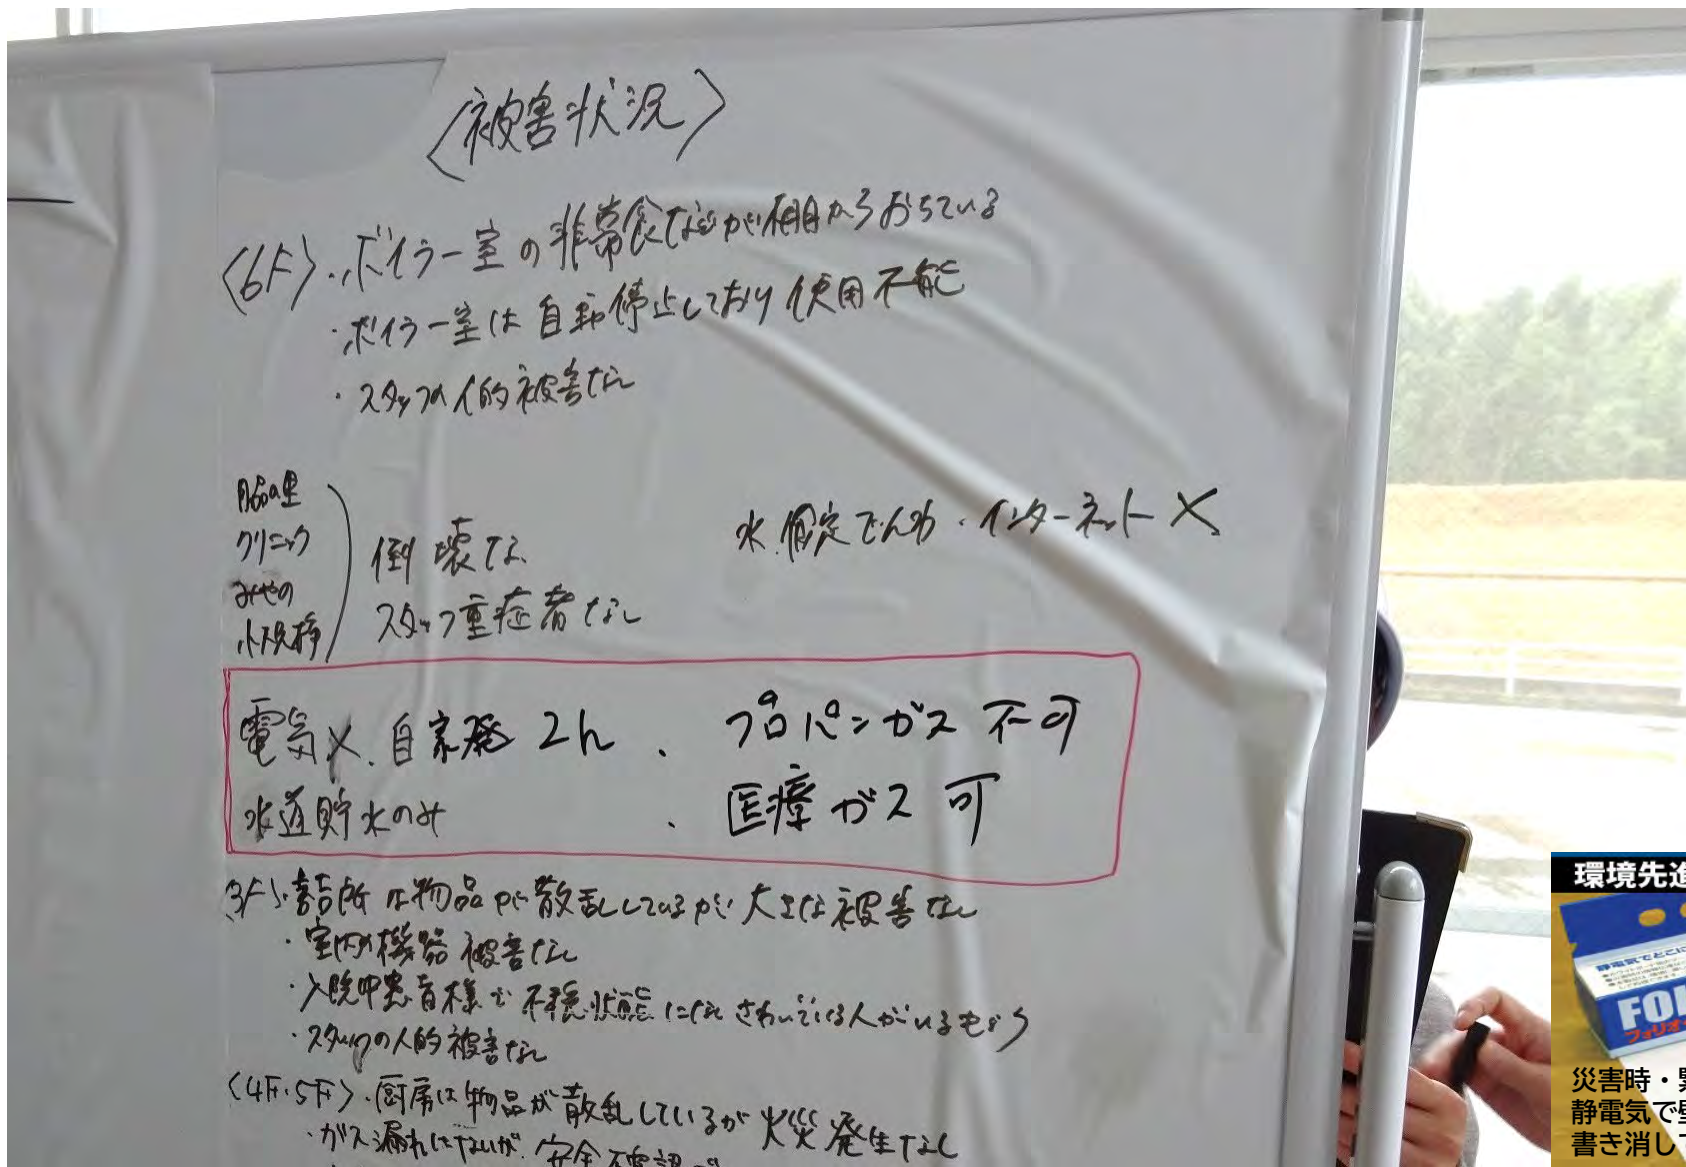 〈被害状況〉
〈6F〉・ボイラー室の非常食などが棚からおちている
・ボイラー室は自動停止しており使用不能
・スタッフの人的被害なし
クリニック
みやの
小規模
倒壊なし
スタッフ重症者なし
水、固定でんわ・インターネット ×
電気×、自家発 2h ・ プロパンガス 不可
水道貯水のみ ・ 医療ガス 可
3F〉・詰所は物品が散乱しているが大きな被害なし
・室内の機器被害なし
・入院中患者様で不穏状態になりさわいでいる人がいるもよう
・スタッフの人的被害なし
〈4F・5F〉・厨房は物品が散乱しているが火災発生なし
・ガス漏れはないが、安全不確認
環境先進
静電気でどこに
FOL
フォリオ
災害時・緊
静電気で壁
書き消して